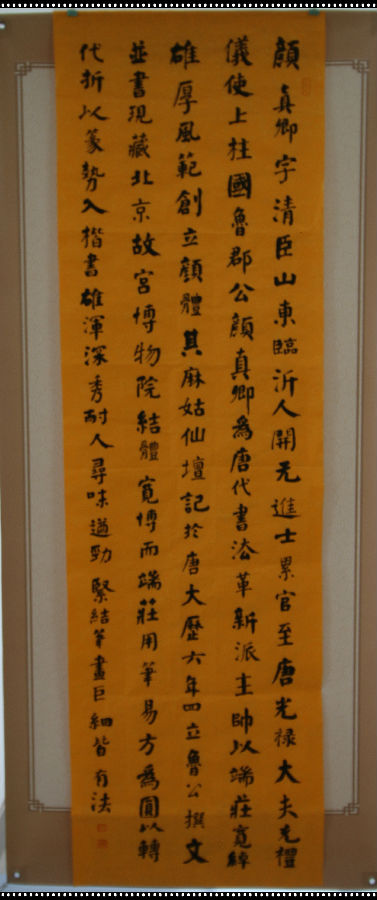 顏真卿字清臣山東臨沂人開元進士累官至唐光祿大夫充禮
儀使上柱國魯郡公顏真卿為唐代書法革新派主帥以端莊寬綽
雄厚風範創立顏體其麻姑仙壇記於唐大歷六年四立魯公撰文
並書現藏北京故宮博物院結體寬博而端莊用筆易方為圓以轉
代折以篆勢入楷書雄渾深秀耐人尋味遒勁緊結筆畫巨細皆有法